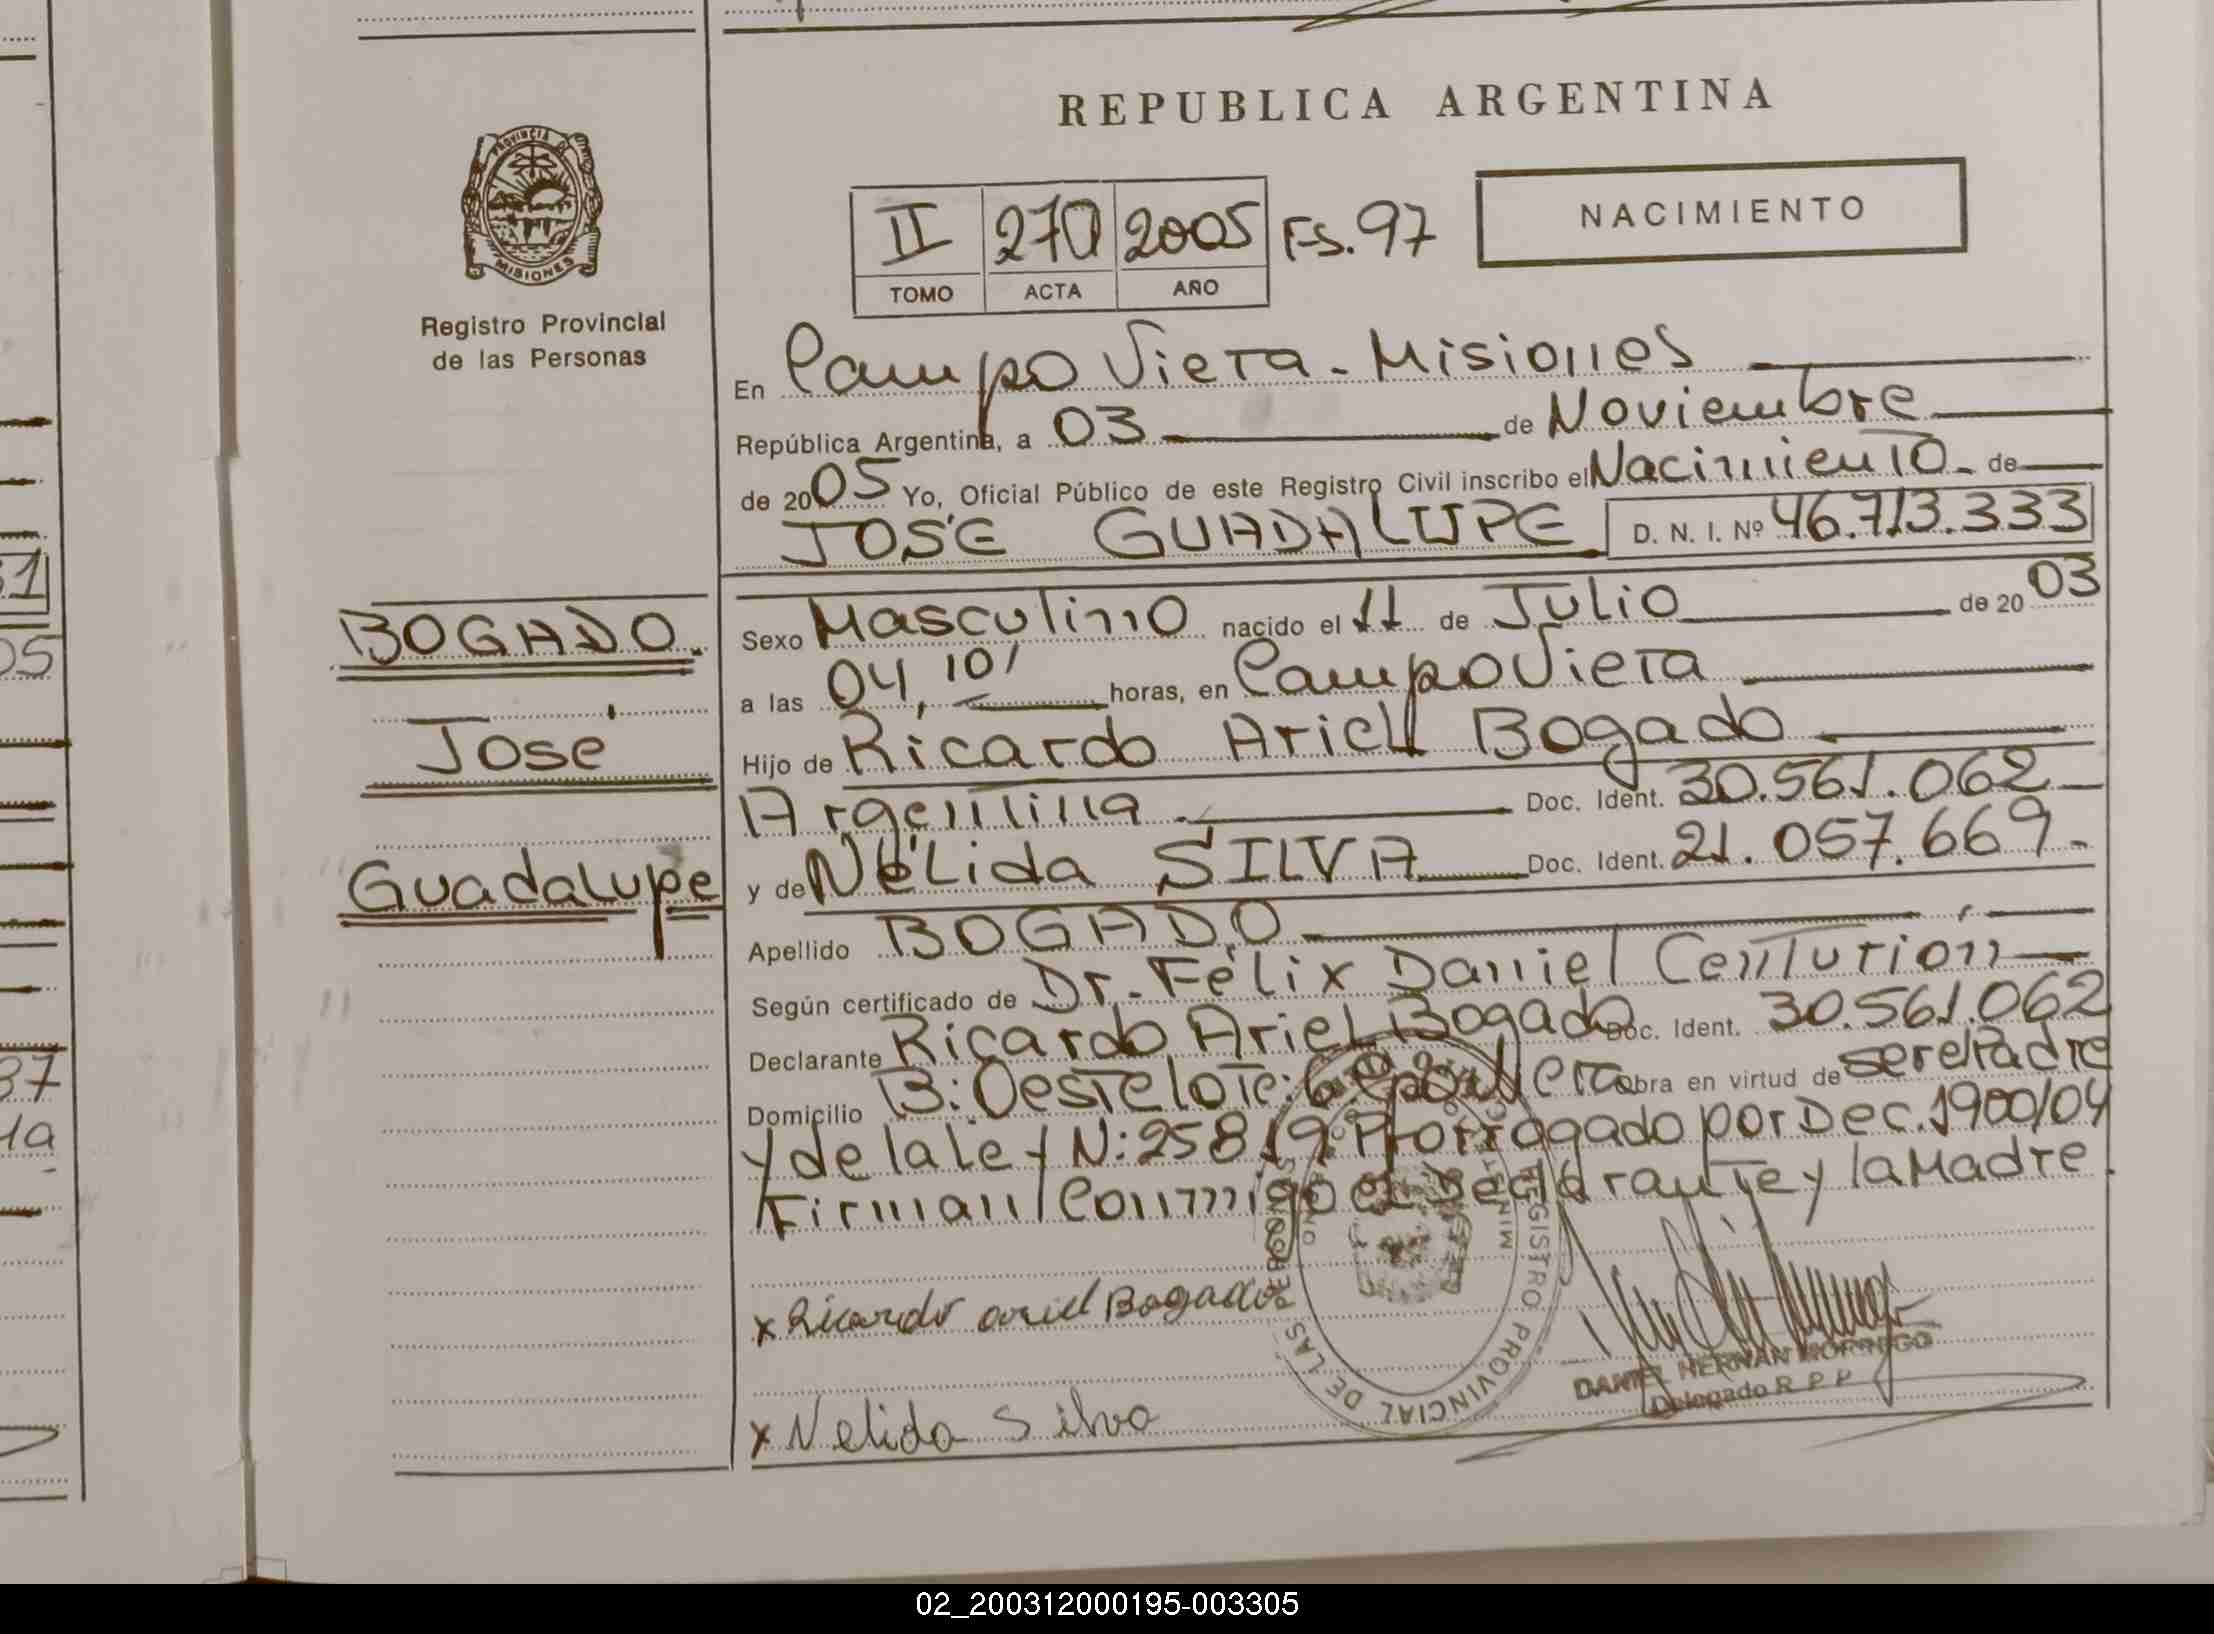 REPUBLICA ARGENTINA
PROVINCIA DE
MISIONES
Registro Provincial
de las Personas
II 270 2005 Fs. 97
TOMO ACTA AÑO
NACIMIENTO
En Campo Viera - Misiones
República Argentina, a 03 de Noviembre
de 2005 Yo, Oficial Público de este Registro Civil inscribo el Nacimiento de
JOSÉ GUADALUPE D. N. I. Nº 46.713.333
BOGADO.
José
Guadalupe
Sexo Masculino nacido el 11 de Julio de 2003
a las 04,10' horas, en Campo Viera
Hijo de Ricardo Ariel Bogado
Argentina Doc. Ident. 30.561.062
y de Nélida SILVA Doc. Ident. 21.057.669.-
Apellido BOGADO
Según certificado de Dr. Félix Daniel Centurión
Declarante Ricardo Ariel Bogado Doc. Ident. 30.561.062
Domicilio B: Oeste lote: 6 obra en virtud de ser el Padre
y de la Ley N: 25819 Prorrogado por Dec. 1900/04
Firman Conmigo el Declarante y la Madre.
x Ricardo ariel Bogado
x Nelida Silva
REGISTRO PROVINCIAL DE LAS PERSONAS
DANIEL HERNAN MORINIGO
Delegado R. P. P.
31
05
37
na
02_200312000195-003305